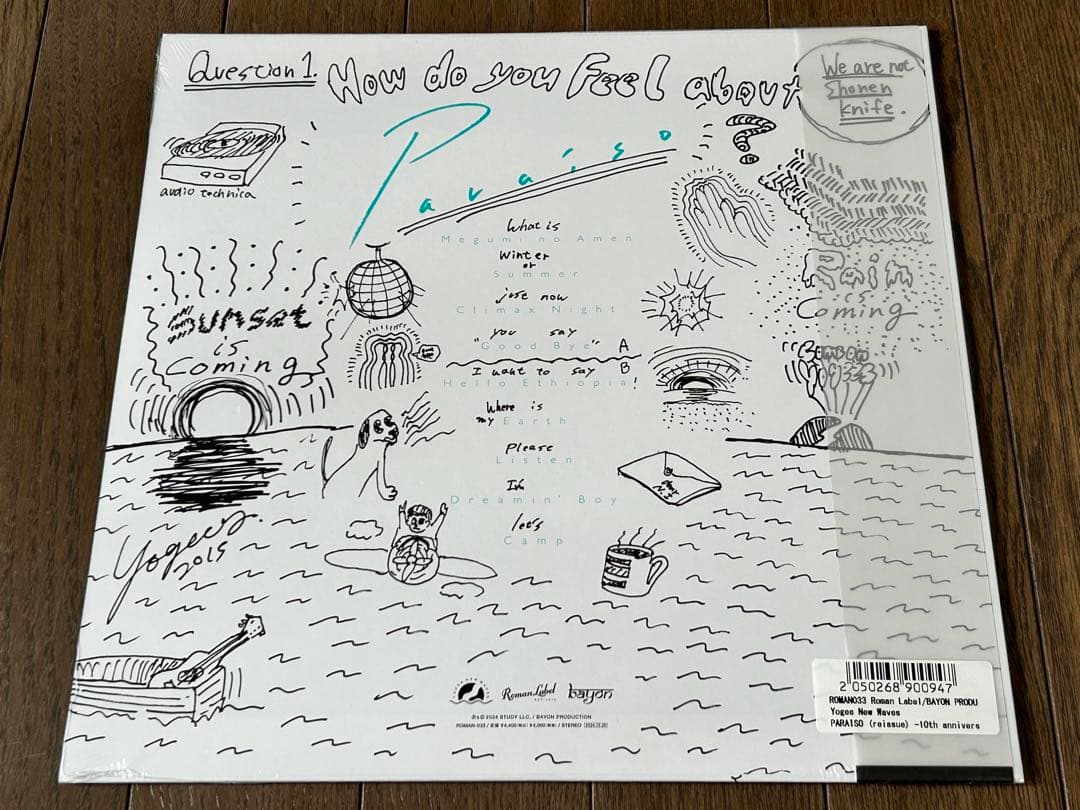 Question 1. How do you Feel about
We are not
Shonen
knife.
Paraiso
?
audio technica
What is
Megumi no Amen
Winter
or
Summer
just now
Climax Night
you say
"Good Bye" A
I want to say B
Hello Ethiopia!
Where is
my Earth
Please
Listen
I'm
Dreamin' Boy
let's
Camp
Sunset
is
Coming
Rain
is
Coming
Yogees.
2015
Roman Label
bayon
℗&© 2024 STUDY LLC. / BAYON PRODUCTION
2 050268 900947
ROMAN033 Roman Label/BAYON PRODU
Yogee New Waves
PARAISO (reissue) -10th annivers